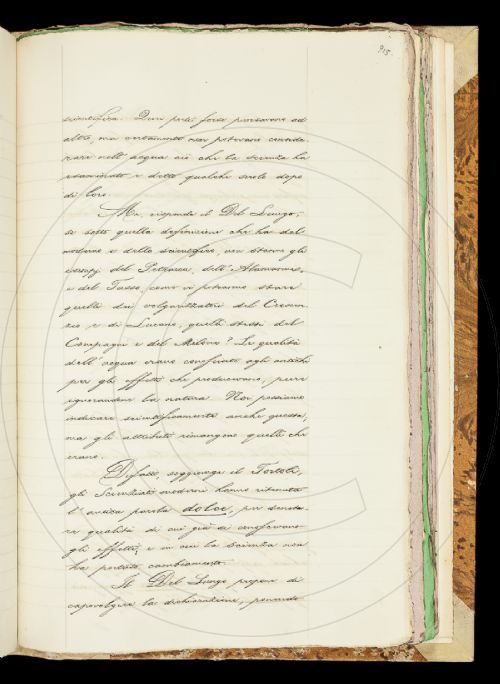 915
scientifica. Quei poeti forse pensavano ad
altro, ma certamente non potevano conside-
rare nell'acqua ciò che la scienza ha
esaminato e detto qualche secolo dopo
di loro.
Ma, risponde il Del Lungo,
se sotto quella definizione che ha del
moderno e dello scientifico, non stanno gli
esempj del Petrarca, dell'Alamanni,
e del Tasso, come vi potranno stare
quelli dei volgarizzatori del Crescen-
zio e di Lucano, quelli stessi del
Compagni e del Malespini? Le qualità
dell'acqua erano conosciute agli antichi
per gli effetti che producevano, pure
ignorandone la natura. Noi possiamo
indicare scientificamente anche questa,
ma gli attributi rimangono quelli che
erano.
Difatti, soggiunge il Tortoli,
gli scienziati moderni hanno ritenuta
l'antica parola dolce, per denota-
re qualità di cui già si conoscevano
gli effetti, e in cui la scienza non
ha portato cambiamento.
Il Del Lungo propone di
capovolgere la dichiarazione, ponendo